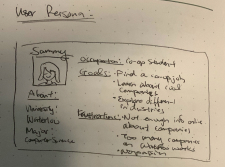 User Persona:
Sammy
Occupation: Co-op Student
Goals: • Find a coop job
• Learn about cool companies
• Explore different industries
About:
University:
Waterloo
Major:
Computer Science
Frustrations: • Not enough info online
about companies
• Too many companies
on works